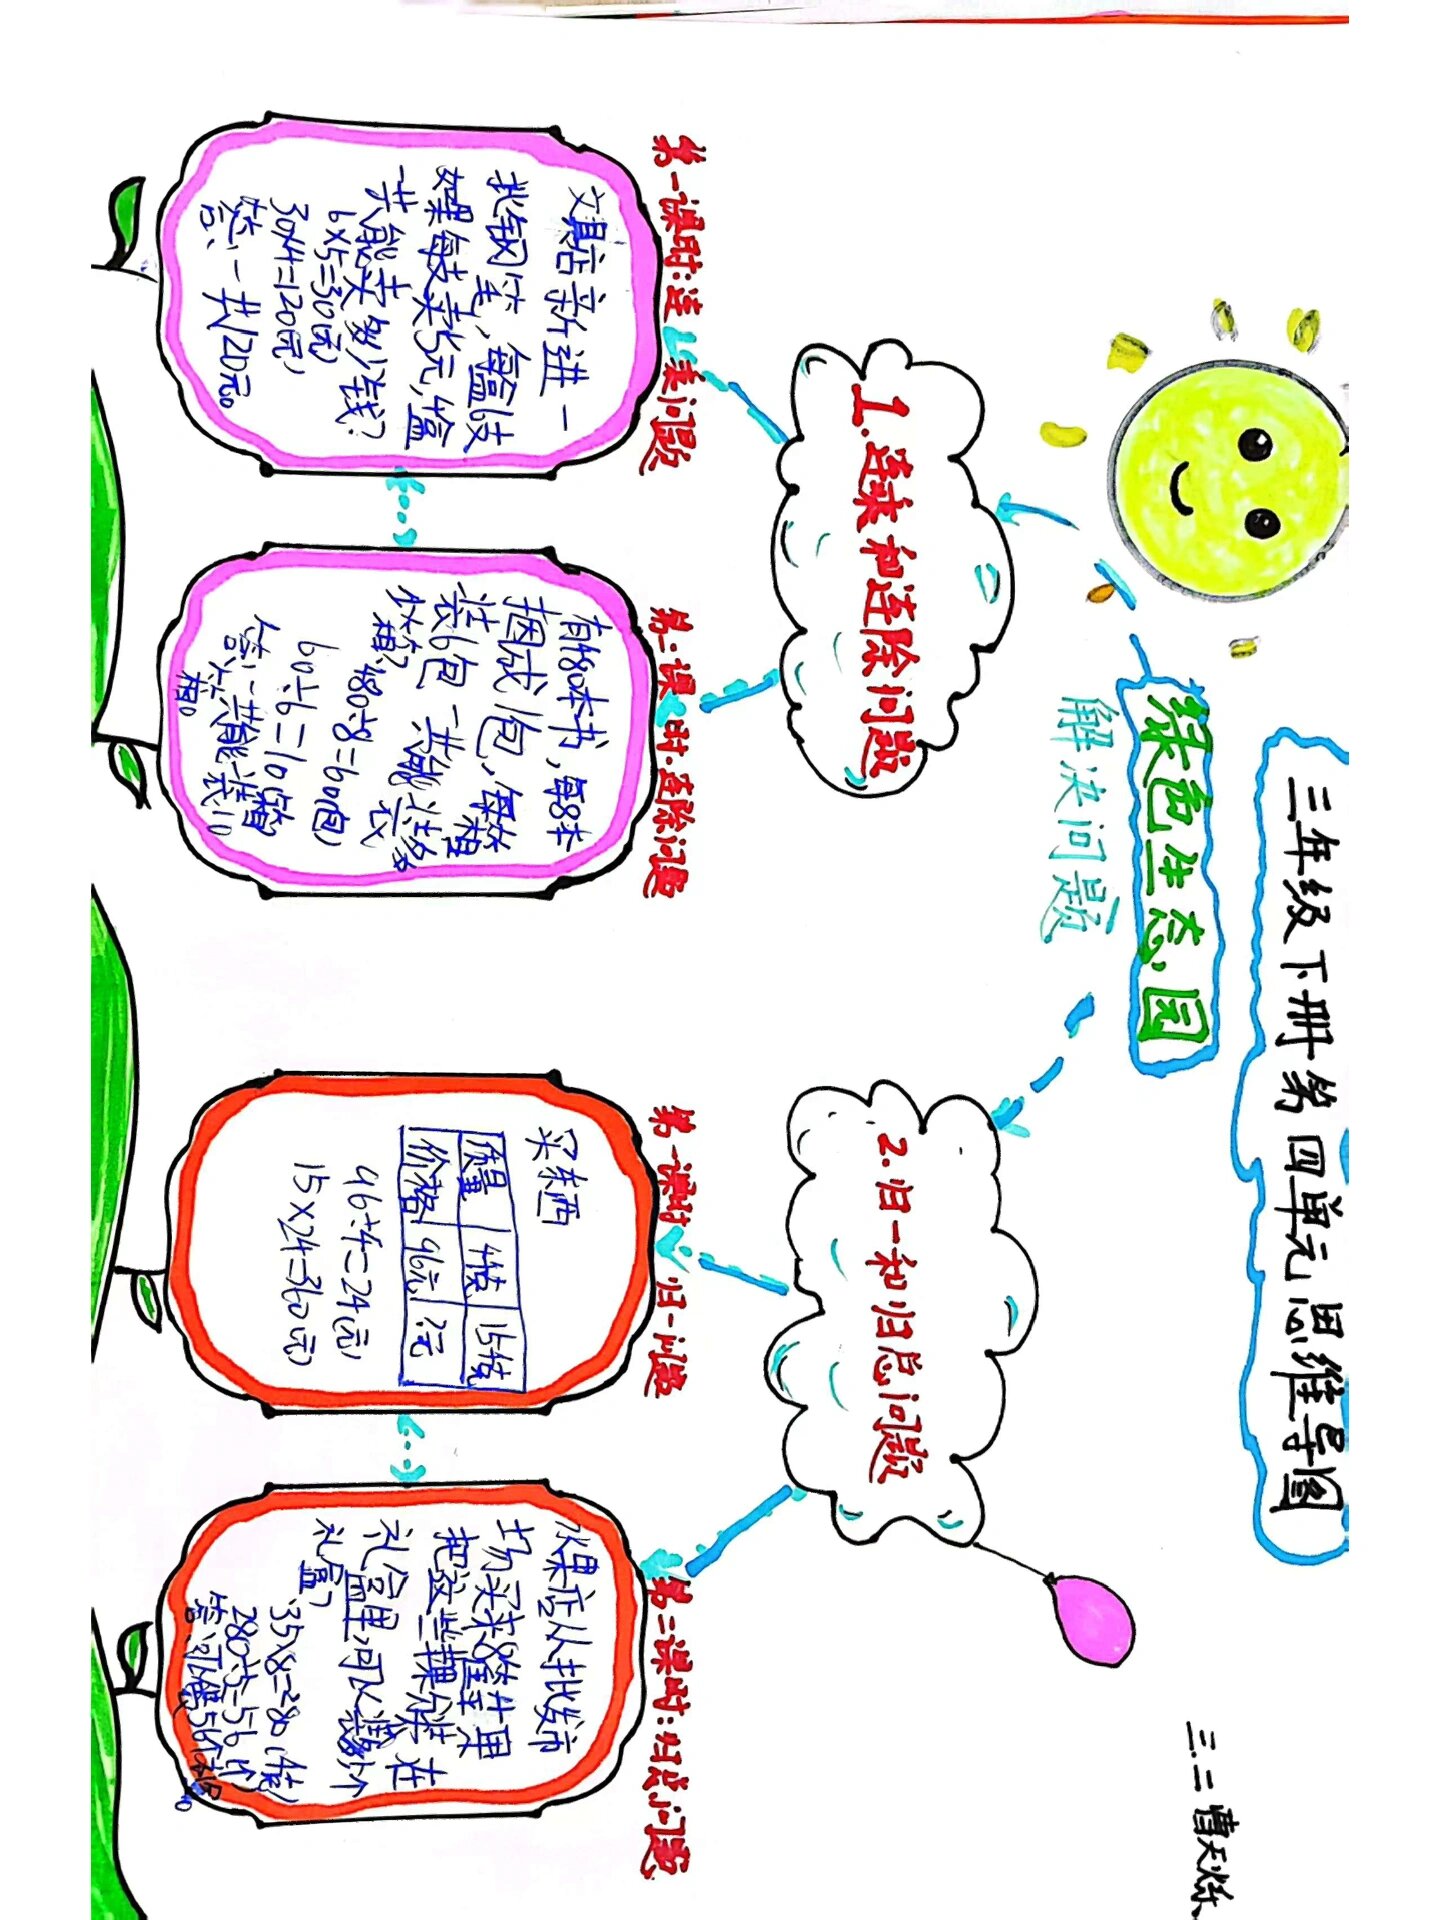 三年级下册第四单元思维导图
绿色生态园
解决问题
三.二曹天烁
1.连乘和连除问题
2.归一和归总问题
第一课时:连乘问题
文具店新进一
批钢笔,每盒6支
如果每支卖5元,4盒
一共能卖多少钱?
6×5=30(元)
30×4=120(元)
答:一共120元。
第二课时:连除问题
有480本书,每8本
捆成1包,每箱
装6包一共能装多
少箱?
480÷8=60(包)
60÷6=10(箱)
答:一共能装10
箱。
第一课时 归一问题
买东西
质量 4 15
价格 96元 ?元
96÷4=24(元)
15×24=360(元)
第二课时:归总问题
水果店从批发市
场买来8箱苹果
把这些苹果分装在
礼盒里,可以装多少个
礼盒?
35×8=280
280÷5=56(个)
答:可以装56个礼盒。